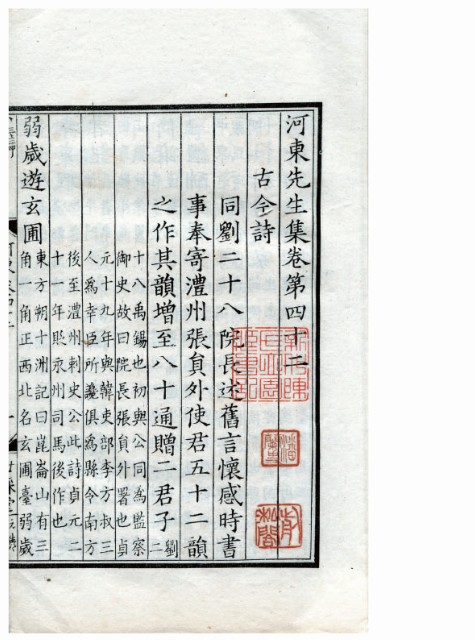 河東先生集卷第四十二
古今詩
同劉二十八院長述舊言懷感時書
事奉寄澧州張員外使君五十二韻
之作其韻增至八十通贈二君子劉二
十八禹錫也初與公同為監察
御史故曰院長張員外署也貞
元十九年與韓吏部李方叔三
人為幸臣所讒俱為縣令南方
後至澧州刺史公此詩貞元二
十一年貶永州司馬後作也
弱歲遊玄圃
東方朔十洲記曰崑崙山有三
角一角正西北名玄圃臺弱歲